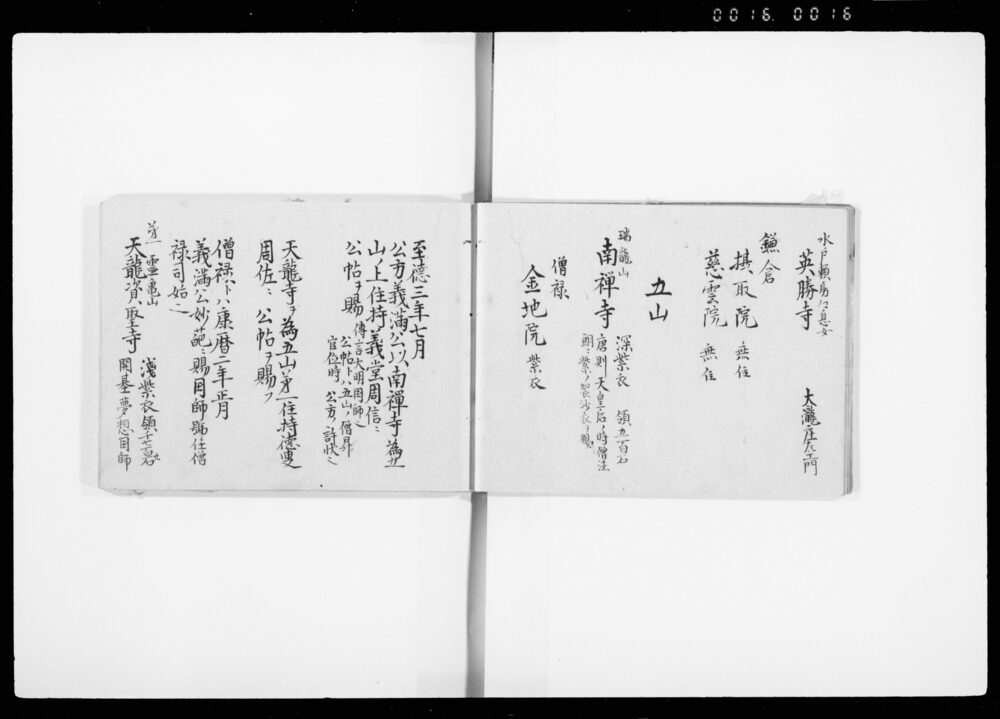 0016 0016
水戸頼房公息女
英勝寺 大瀧庄左衛門
鎌倉
摂取院 無住
慈雲院 無住
五山
瑞龍山
南禅寺 深紫衣 領九百石
唐則天皇后ノ時僧法
朗ニ紫ノ袈沙衣ヲ賜
僧禄
金地院 紫衣
至徳三年七月
公方義満公以南禅寺為五
山ノ上住持義堂周信ニ
公帖ヲ賜 傳言大明国師ト
公帖トハ五山ノ僧昇
官位時 公方ノ許状也
天龍寺ヲ為五山第一住持徳叟
周佐ニ 公帖ヲ賜フ
僧禄トハ康暦二年正月
義満公妙葩ニ賜国師號任僧
禄司始也
第一 霊亀山 浅紫衣 領千七百石
天龍資聖寺 開基夢想国師